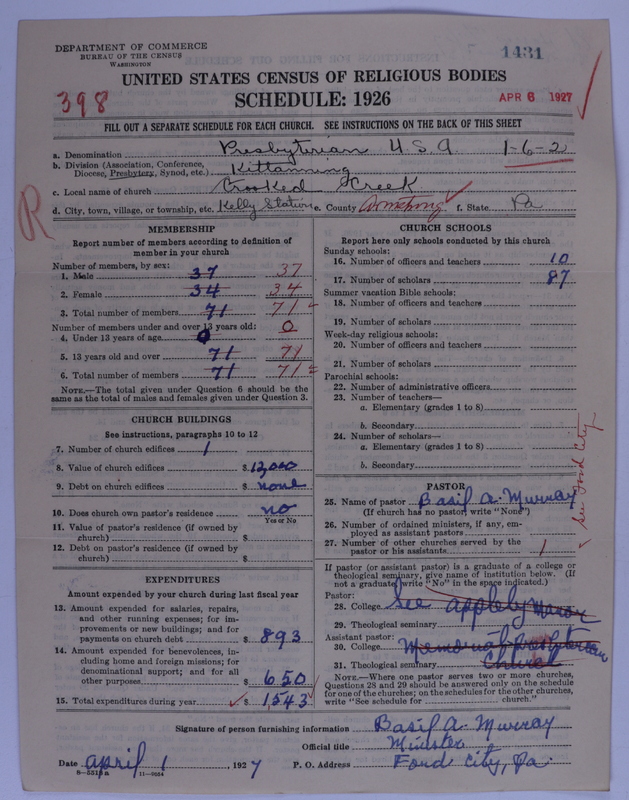 DEPARTMENT OF COMMERCE
BUREAU OF THE CENSUS
WASHINGTON
1431
UNITED STATES CENSUS OF RELIGIOUS BODIES
398
SCHEDULE: 1926
APR 6 1927
FILL OUT A SEPARATE SCHEDULE FOR EACH CHURCH. SEE INSTRUCTIONS ON THE BACK OF THIS SHEET
a. Denomination Presbyterian U.S.A 1-6-2
b. Division (Association, Conference,
Diocese, Presbytery, Synod, etc.) Kittanning
c. Local name of church Crooked Creek
R
d. City, town, village, or township, etc. Kelly Station e. County Armstrong f. State Pa
MEMBERSHIP
Report number of members according to definition of
member in your church
Number of members, by sex:
1. Male 37 37
2. Female 34 34
3. Total number of members 71 71
Number of members under and over 13 years old: 0
4. Under 13 years of age 0
5. 13 years old and over 71 71
6. Total number of members 71 71
NOTE.—The total given under Question 6 should be the
same as the total of males and females given under Question 3.
CHURCH BUILDINGS
See instructions, paragraphs 10 to 12
7. Number of church edifices 1
8. Value of church edifices $ 12,000
9. Debt on church edifices $ none
10. Does church own pastor's residence no
Yes or No
11. Value of pastor's residence (if owned by
church) $
12. Debt on pastor's residence (if owned by
church) $
EXPENDITURES
Amount expended by your church during last fiscal year
13. Amount expended for salaries, repairs,
and other running expenses; for im-
provements or new buildings; and for
payments on church debt $ 893
14. Amount expended for benevolences, in-
cluding home and foreign missions; for
denominational support; and for all
other purposes $ 650
15. Total expenditures during year $ 1543
CHURCH SCHOOLS
Report here only schools conducted by this church
Sunday schools:
16. Number of officers and teachers 10
17. Number of scholars 87
Summer vacation Bible schools:
18. Number of officers and teachers
19. Number of scholars
Week-day religious schools:
20. Number of officers and teachers
21. Number of scholars
Parochial schools:
22. Number of administrative officers
23. Number of teachers—
a. Elementary (grades 1 to 8)
b. Secondary
24. Number of scholars—
a. Elementary (grades 1 to 8)
b. Secondary
See Ford City
PASTOR
25. Name of pastor Basil A. Murray
(If church has no pastor, write "None")
26. Number of ordained ministers, if any, em-
ployed as assistant pastors
27. Number of other churches served by the
pastor or his assistants 1
If pastor (or assistant pastor) is a graduate of a college or
theological seminary, give name of institution below. (If
not a graduate, write "No" in the space indicated.)
Pastor:
28. College See Appleby Manor
29. Theological seminary
Assistant pastor:
30. College Memorial Presbyterian
31. Theological seminary Church
NOTE.—Where one pastor serves two or more churches,
Questions 28 and 29 should be answered only on the schedule
for one of the churches; on the schedules for the other churches,
write "See schedule for church."
Signature of person furnishing information Basil A. Murray
Official title Minister
Date April 1, 1927 P. O. Address Ford City, Pa.
8-5515a 11-9054